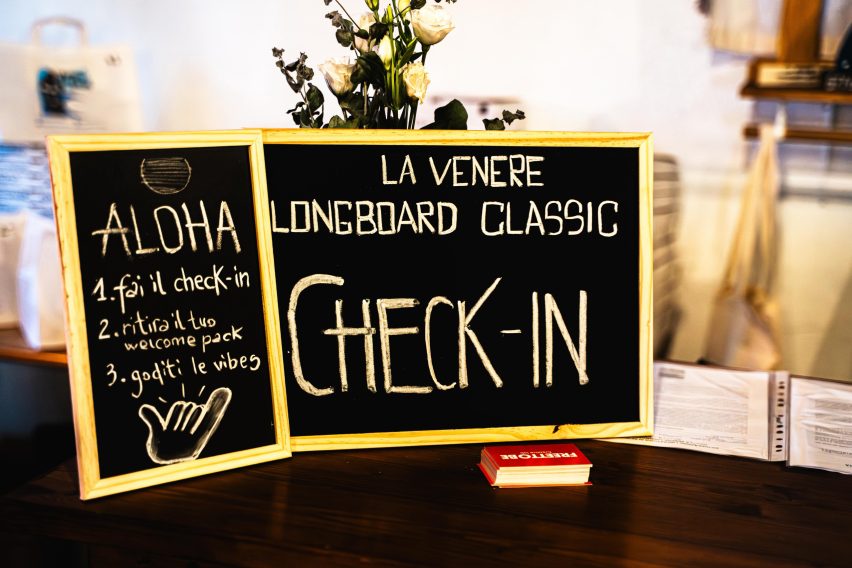 ALOHA
1. fai il check-in
2. ritira il tuo
welcome pack
3. goditi le vibes
LA VENERE
LONGBOARD CLASSIC
CHECK-IN
FREETOBE